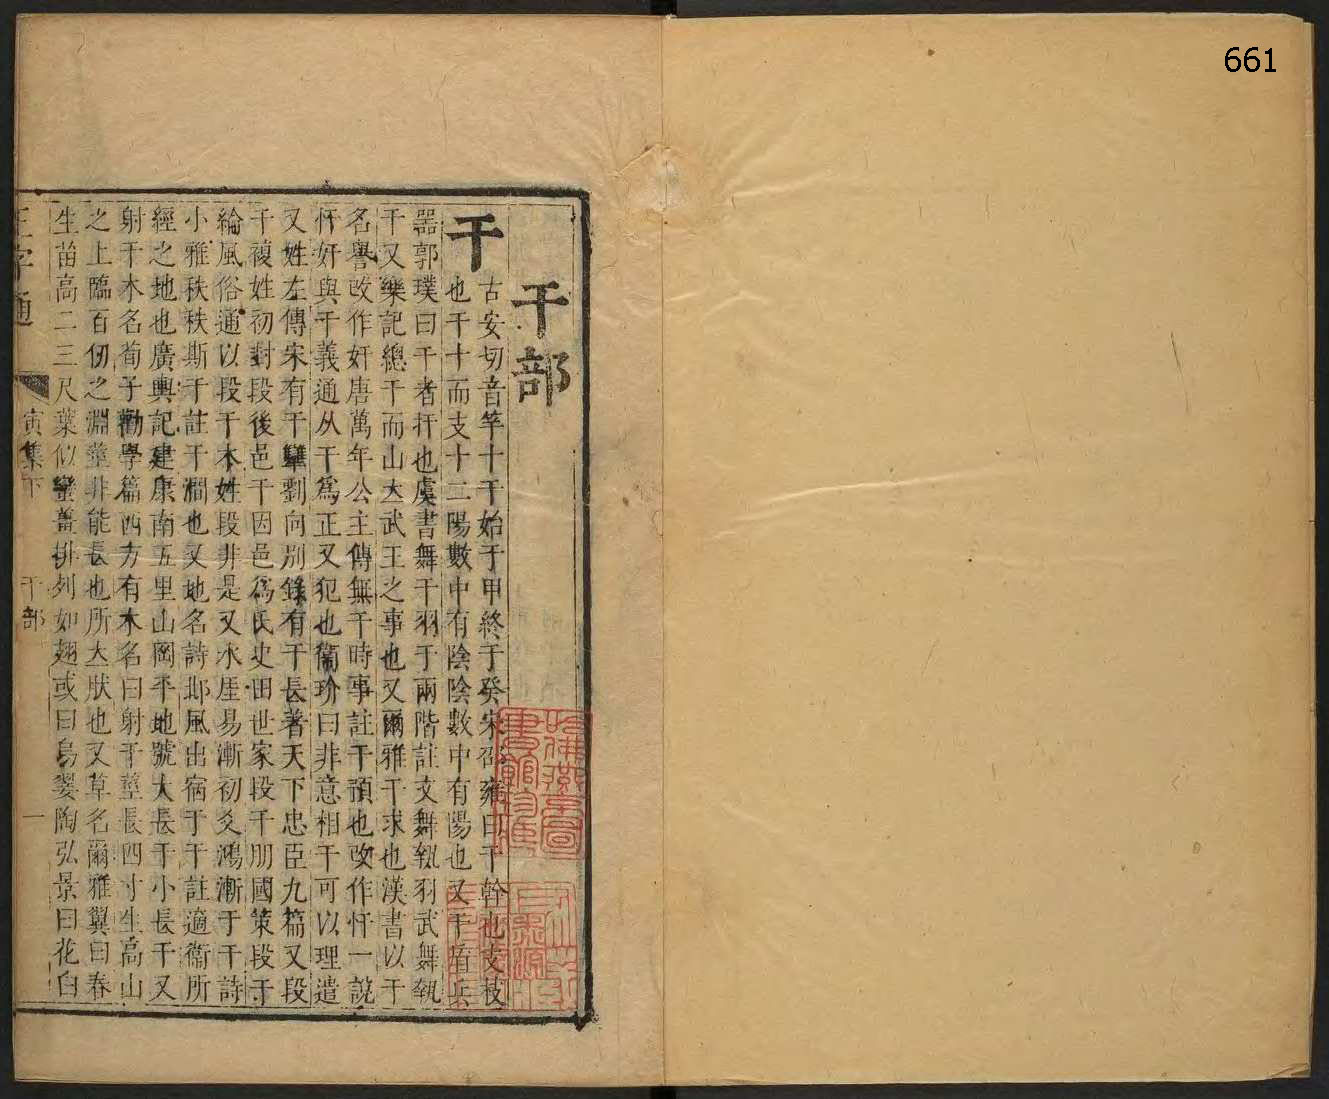 661
干部
干
古安切音竿十干始于甲終于癸宋邵雍曰干幹也支枝
也干十而支十二陽數中有陰陰數中有陽也又干盾兵
器郭璞曰干者扞也虞書舞干羽于兩階註文舞執羽武舞執
干又樂記總干而山立武王之事也又爾雅干求也漢書以干
名譽改作奸唐萬年公主傳無干時事註干預也改作忓一說
忓奸與干義通从干爲正又犯也衞玠曰非意相干可以理遣
又姓左傳宋有干犨劉向別錄有干長著天下忠臣九篇又段
干複姓初封段後邑干因邑爲氏史田世家段干朋國策段干
綸風俗通以段干木姓段非是又水厓易漸初爻鴻漸于干詩
小雅秩秩斯干註干澗也又地名詩邶風出宿于干註適衞所
經之地也廣輿記建康南五里山岡平地號大長干小長干又
射干木名荀子勸學篇西方有木名曰射干莖長四寸生高山
之上臨百仞之淵莖非能長也所立狀也又草名爾雅翼曰春
生苗高二三尺葉似蠻薑排列如翅或曰烏翣陶弘景曰花白
正字通
寅集下
干部
一